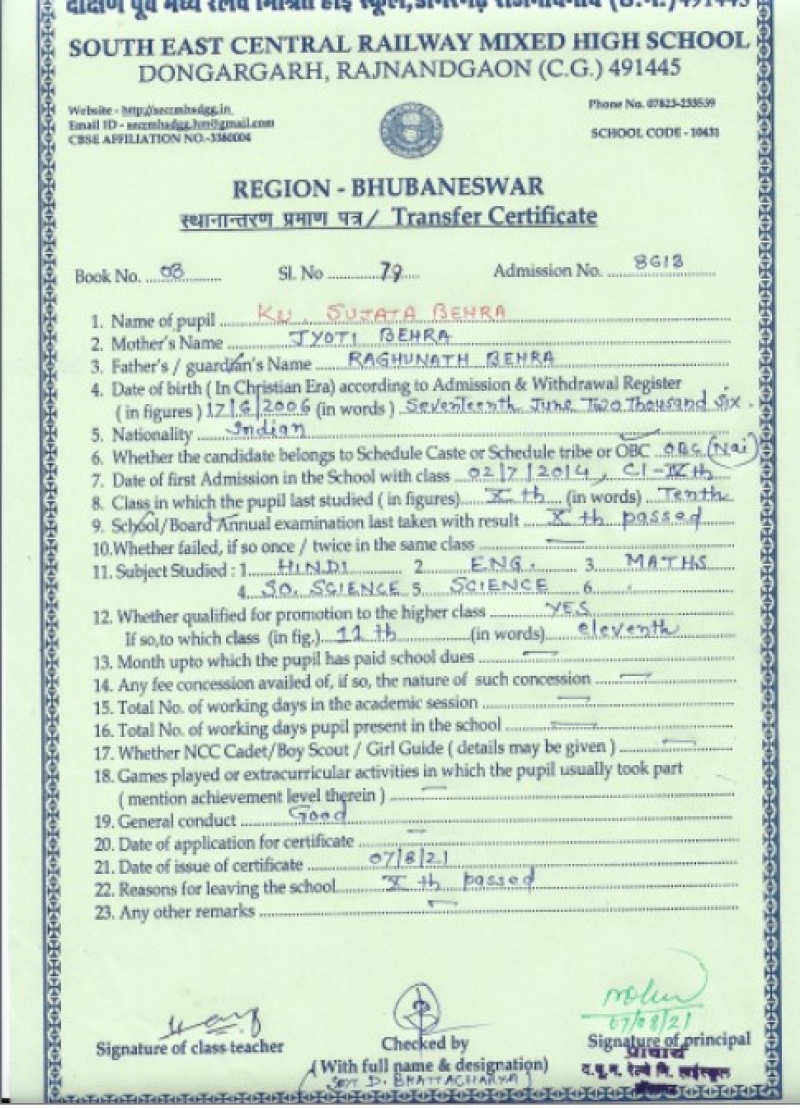 दक्षिण पूर्व मध्य रेलवे मिश्रित हाई स्कूल, डोंगरगढ़ राजनांदगांव (छ.ग.) 491445
SOUTH EAST CENTRAL RAILWAY MIXED HIGH SCHOOL
DONGARGARH, RAJNANDGAON (C.G.) 491445
Website - http://seccmhsdgg.in
Phone No. 07823-233539
Email ID - seccmhsdgg.hm@gmail.com
CBSE AFFILIATION NO.-3380004
SCHOOL CODE - 10431
REGION - BHUBANESWAR
स्थानान्तरण प्रमाण पत्र / Transfer Certificate
Book No. 03 Sl. No 79 Admission No. 8613
1. Name of pupil KU. SUJATA BEHRA
2. Mother's Name JYOTI BEHRA
3. Father's / guardian's Name RAGHUNATH BEHRA
4. Date of birth ( In Christian Era) according to Admission & Withdrawal Register
( in figures ) 17/6/2006 (in words ) Seventeenth June Two Thousand Six.
5. Nationality Indian
6. Whether the candidate belongs to Schedule Caste or Schedule tribe or OBC OBC (Nai)
7. Date of first Admission in the School with class 02/7/2014, Cl-IVth
8. Class in which the pupil last studied ( in figures) Xth (in words) Tenth
9. School/Board Annual examination last taken with result Xth passed
10.Whether failed, if so once / twice in the same class —
11. Subject Studied : 1. HINDI 2 ENG. 3. MATHS
4. SO. SCIENCE 5. SCIENCE 6.
12. Whether qualified for promotion to the higher class YES
If so,to which class (in fig.) 11th (in words) eleventh
13. Month upto which the pupil has paid school dues —
14. Any fee concession availed of, if so, the nature of such concession —
15. Total No. of working days in the academic session —
16. Total No. of working days pupil present in the school —
17. Whether NCC Cadet/Boy Scout / Girl Guide ( details may be given ) —
18. Games played or extracurricular activities in which the pupil usually took part
( mention achievement level therein ) —
19. General conduct Good
20. Date of application for certificate —
21. Date of issue of certificate 07/8/21
22. Reasons for leaving the school Xth passed
23. Any other remarks —
07/08/21
Signature of class teacher Checked by Signature of principal
प्राचार्य
(With full name & designation) द.पू.म. रेल्वे मि. हाईस्कूल
(SMT D. BHATTACHARYA)